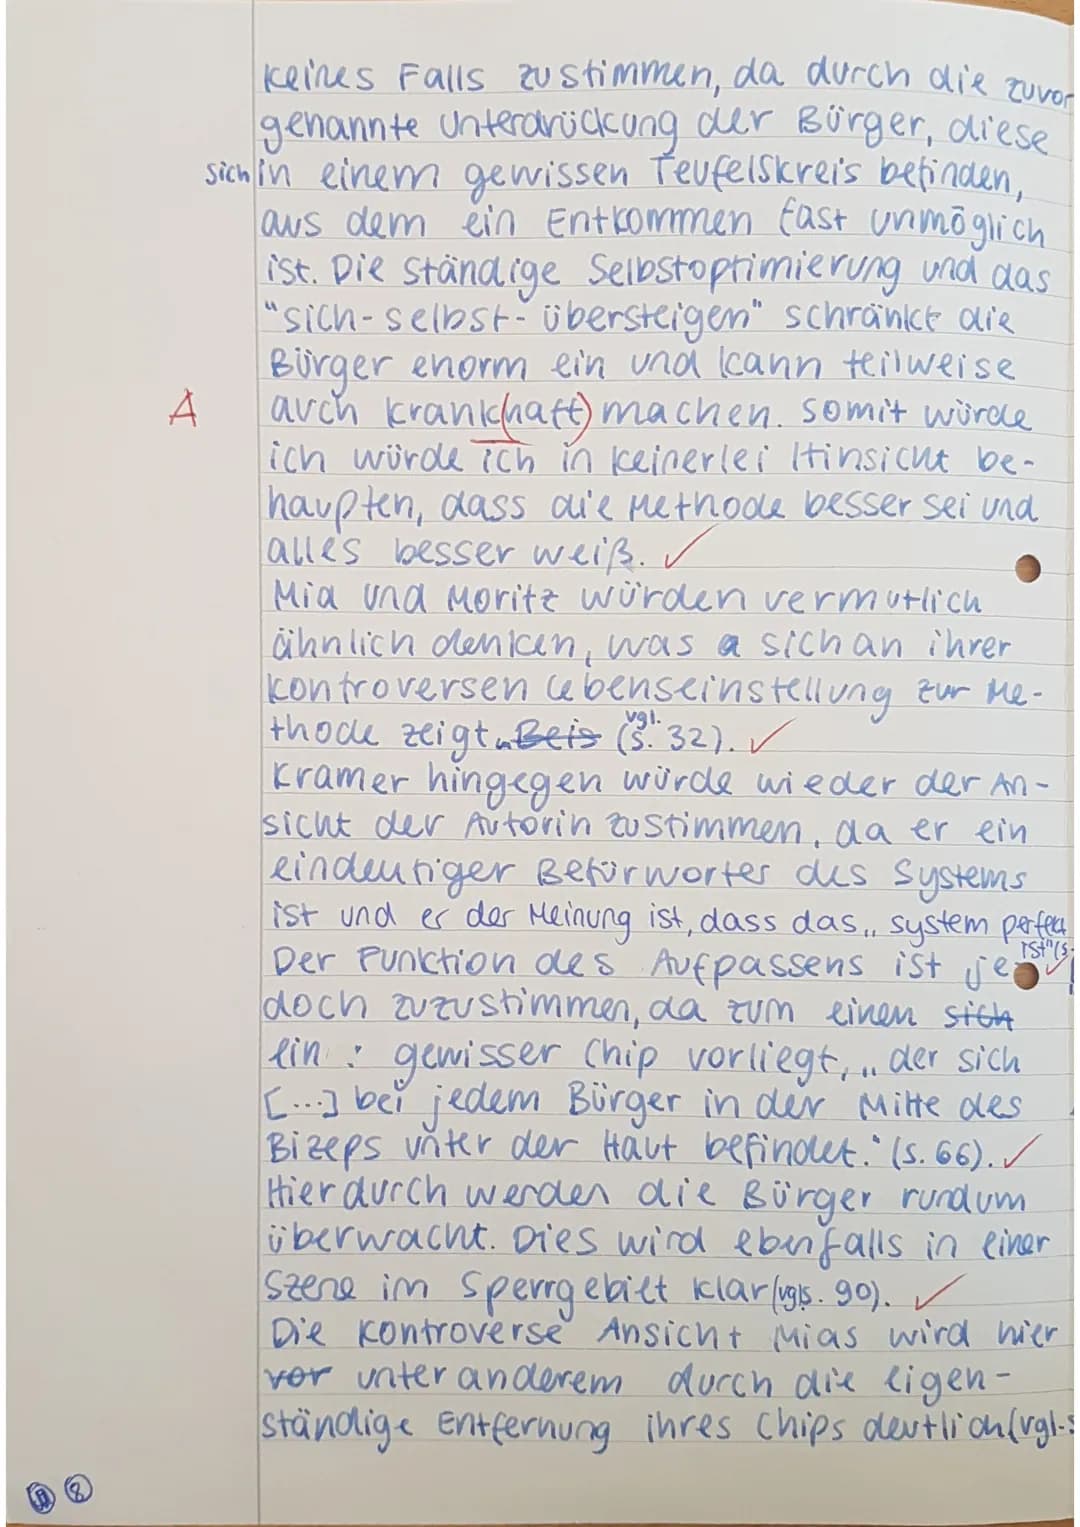 keines Falls zustimmen, da durch die zuvor
genannte Unterdrückung der Bürger, diese
sich in einem gewissen Teufelskreis befinden,
aus dem ein Entkommen fast unmöglich
ist. Die ständige Selbstoptimierung und das
"sich-selbst-übersteigen" schränkt die
Bürger enorm ein und kann teilweise
A auch krank(haft) machen. Somit würde
ich würde ich in keinerlei Hinsicht be-
haupten, dass die Methode besser sei und
alles besser weiß. ✓
Mia und Moritz würden vermutlich
ähnlich denken, was a sich an ihrer
kontroversen Lebenseinstellung zur Me-
thode zeigt Beis (vgl. S. 32). ✓
Kramer hingegen würde wieder der An-
sicht der Autorin zustimmen, da er ein
eindeutiger Befürworter des Systems
ist und er der Meinung ist, dass das „System perfekt
ist" (S.
Der Funktion des Aufpassens ist je-
doch zuzustimmen, da zum einen sich
ein gewisser Chip vorliegt, „der sich
[...] bei jedem Bürger in der Mitte des
Bizeps unter der Haut befindet." (S. 66). ✓
Hierdurch werden die Bürger rundum
überwacht. Dies wird ebenfalls in einer
Szene im Sperrgebiet klar (vgl S. 90). ✓
Die kontroverse Ansicht Mias wird hier
vor unter anderem durch die eigen-
ständige Entfernung ihres Chips deutlich (vgl. S
8